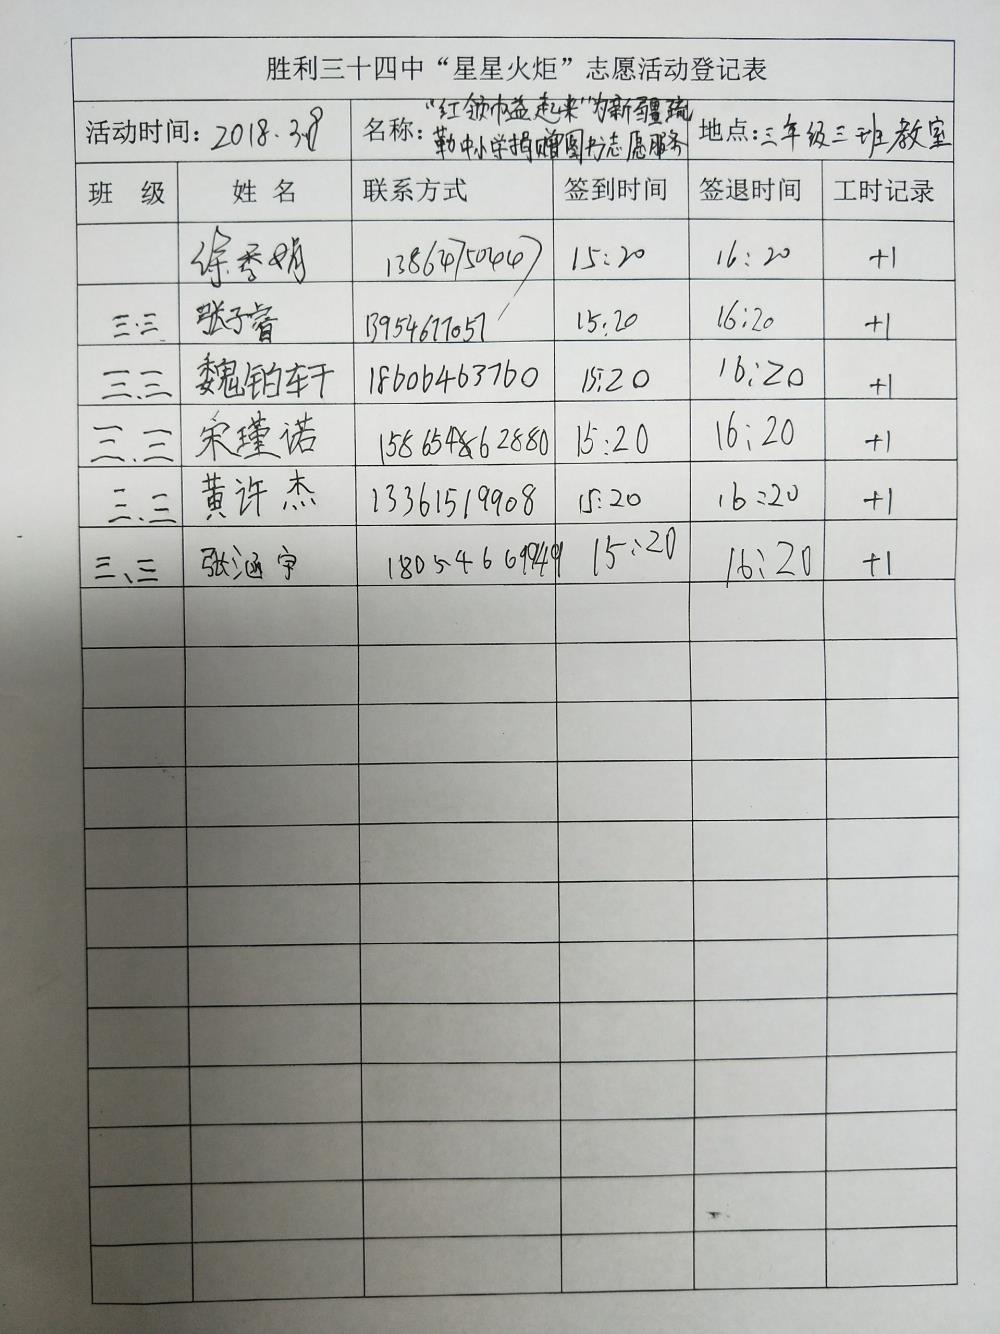 胜利三十四中“星星火炬”志愿活动登记表
活动时间：2018.3.8 名称：“红领巾益起来”为新疆疏勒中小学捐赠图书志愿服务 地点：三年级三班教室
班 级 姓 名 联系方式 签到时间 签退时间 工时记录
徐秀娟 13864750447 15:20 16:20 +1
三.三 张子睿 13954677057 15:20 16:20 +1
三.三 魏铂轩 18606463760 15:20 16:20 +1
三.三 宋瑾诺 15:20 16:20 +1
三.三 黄许杰 13361519908 15:20 16:20 +1
三、三 张涵宇 15:20 16:20 +1